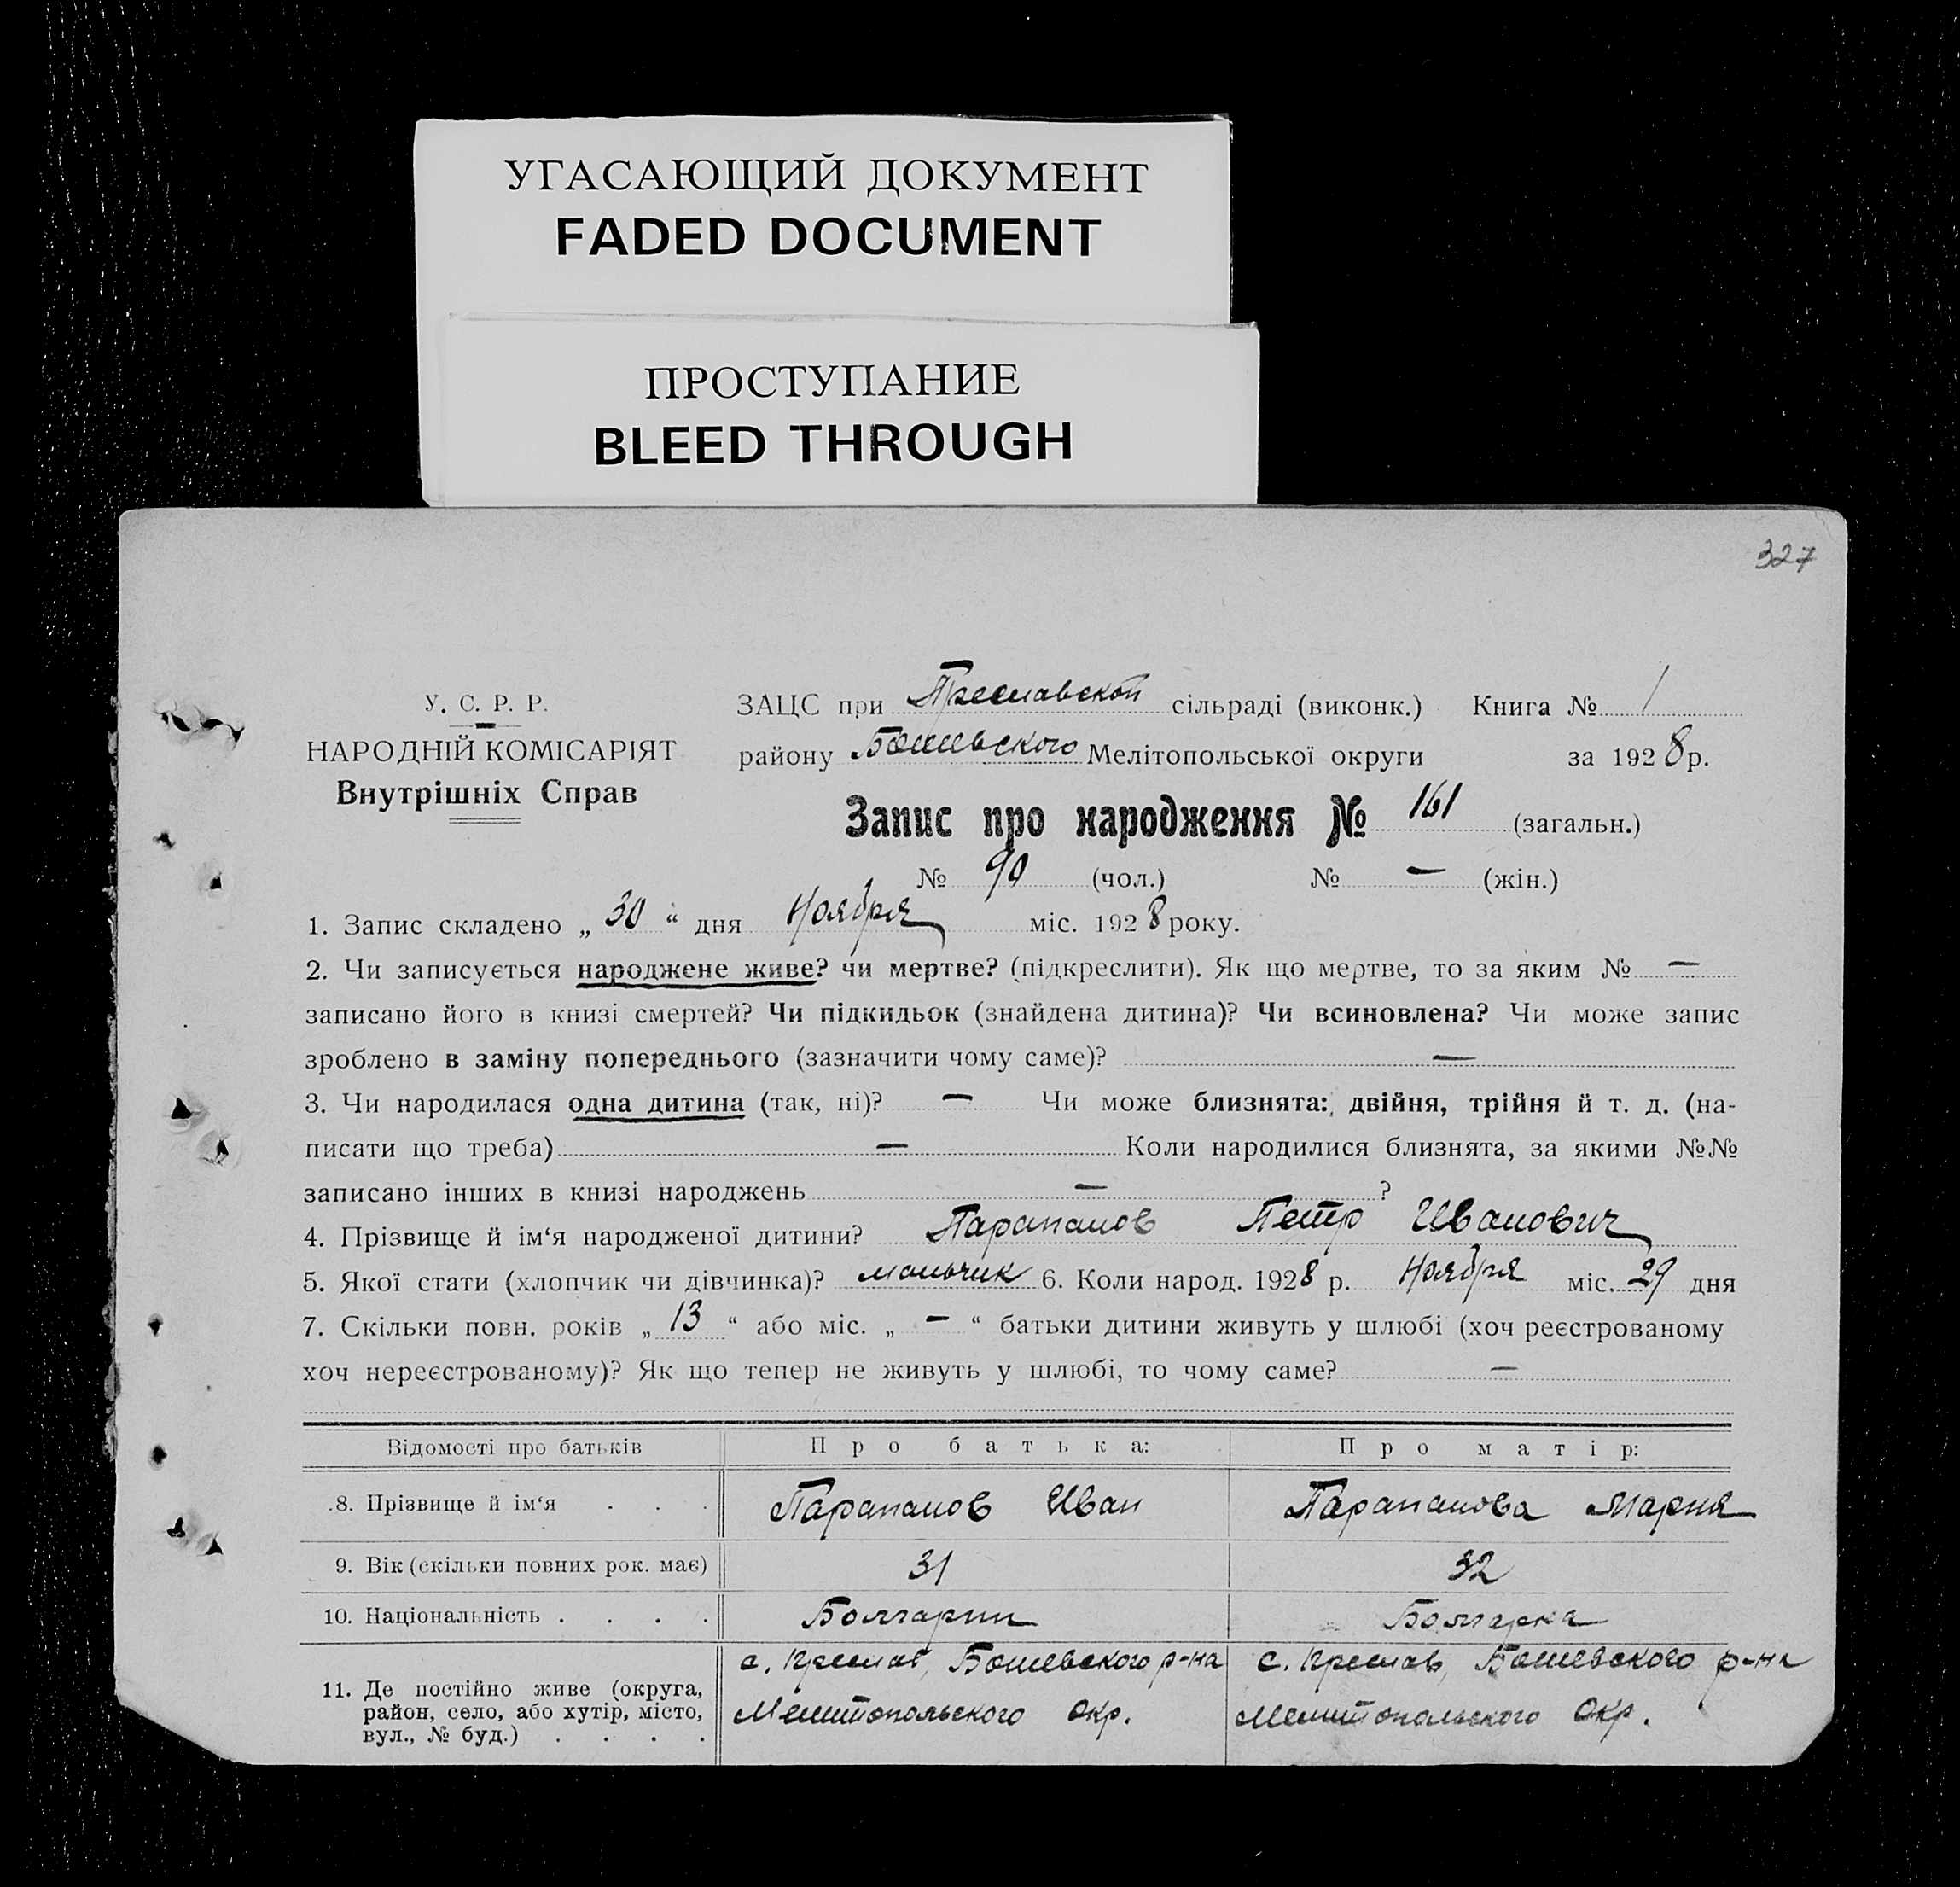 УГАСАЮЩИЙ ДОКУМЕНТ
FADED DOCUMENT
ПРОСТУПАНИЕ
BLEED THROUGH
327
У. С. Р. Р.
НАРОДНІЙ КОМІСАРІЯТ
Внутрішніх Справ
ЗАЦС при Преславской сільраді (виконк.) Книга № 1
району Мелітопольської округи за 1928 р.
Запис про народження № 161 (загальн.)
№ 90 (чол.) № — (жін.)
1. Запис складено „ 30 “ дня Ноября міс. 1928 року.
2. Чи записується народжене живе? чи мертве? (підкреслити). Як що мертве, то за яким № —
записано його в книзі смертей? Чи підкидьок (знайдена дитина)? Чи всиновлена? Чи може запис
зроблено в заміну попереднього (зазначити чому саме)? —
3. Чи народилася одна дитина (так, ні)? — Чи може близнята: двійня, трійня й т. д. (на-
писати що треба) — Коли народилися близнята, за якими №№
записано інших в книзі народжень — ?
4. Прізвище й ім‘я народженої дитини? Парапанов Петр Иванович
5. Якої стати (хлопчик чи дівчинка)? мальчик 6. Коли народ. 1928 р. Ноября міс. 29 дня
7. Скільки повн. років „ 13 “ або міс. „ — “ батьки дитини живуть у шлюбі (хоч реєстрованому
хоч нереєстрованому)? Як що тепер не живуть у шлюбі, то чому саме? —
Відомості про батьків Про батька: Про матір:
8. Прізвище й ім‘я . . . Парапанов Иван Парапанова Мария
9. Вік (скільки повних рок. має) 31 32
10. Національність . . . . Болгарин Болгарка
11. Де постійно живе (округа,
район, село, або хутір, місто,
вул., № буд.) . . . .
с. Преслав, р-на
Мелитопольского Окр.
с. Преслав, р-на
Мелитопольского Окр.